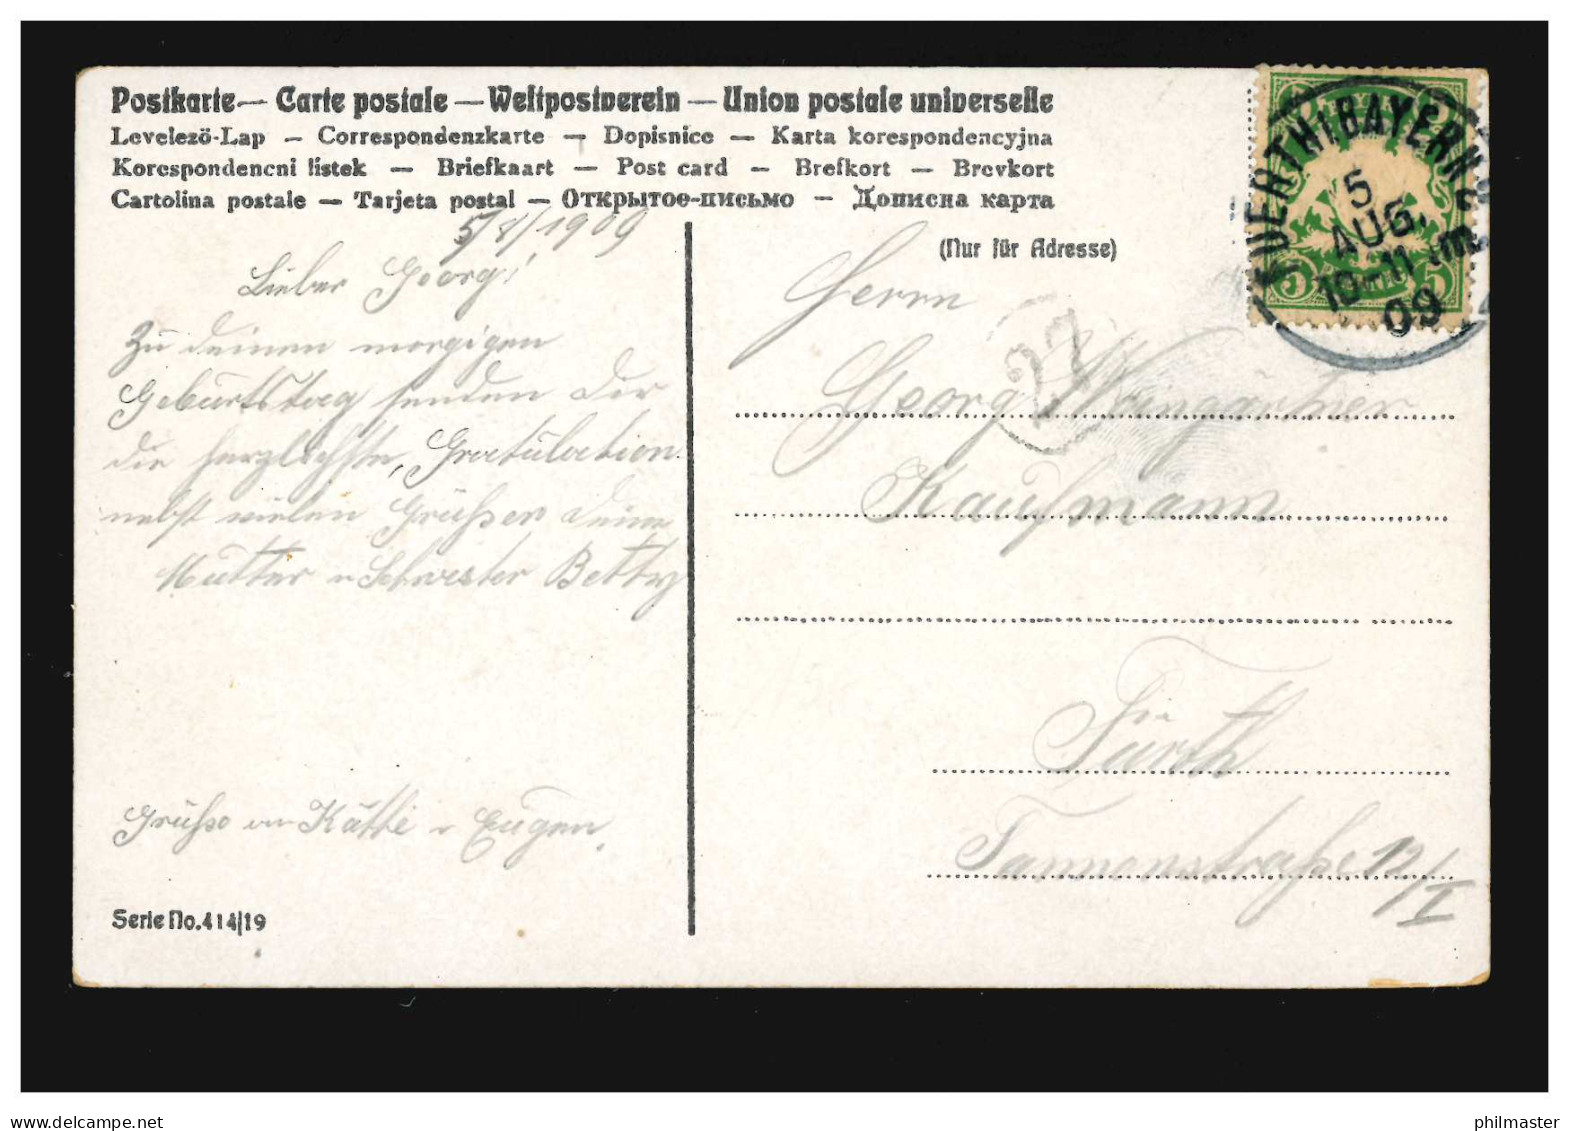 Postkarte — Carte postale — Weltpostverein — Union postale universelle
Levelezö-Lap — Correspondenzkarte — Dopisnice — Karta korespondencyjna
Korespondencni listek — Briefkaart — Post card — Brefkort — Brevkort
Cartolina postale — Tarjeta postal — Открытое-письмо — Дописна карта
5/8/1909
Lieber Georg!
Zu deinem morgigen
Geburtstag senden Dir
die herzlichste Gratulation
nebst vielen Grüßen deine
Mutter u Schwester Betty
Grüße an Käthi u Eugen.
Serie No. 414/19
(Nur für Adresse)
Herrn
Georg Weingärtner
Kaufmann
Fürth
Tannenstraße 12/I
27
FUERTH (BAYERN) 2
5
AUG.
10-11
09
5
5
delcampe.net
philmaster